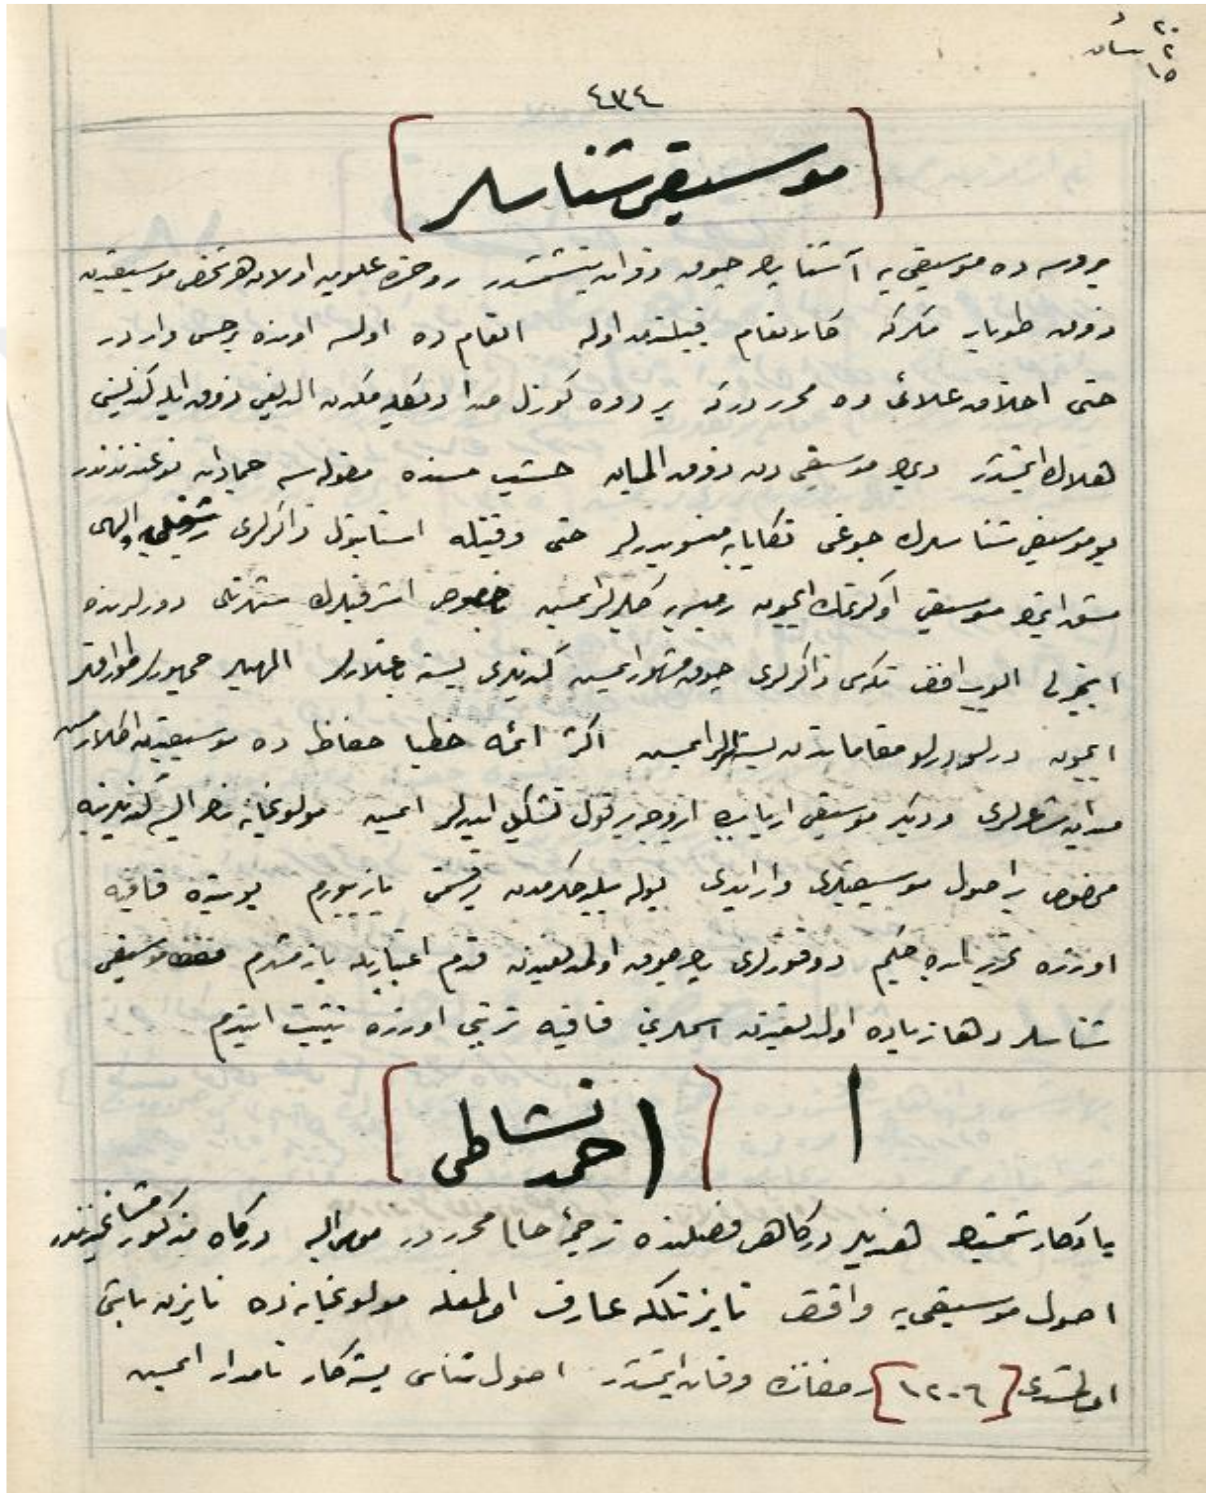 ٤٣٤
موسیقی شناسلر
بروسه ده موسیقی یه آشنا پك چوق ذوات یتشمشدر روحنده علویت اولان هر شخص موسیقیدن
ذوق طویار مكركه كالانعام قبیلندن اوله انعام ده اولسه اونده بر حس واردر
حتی اخلاق علائی ده محرردركه بر دوه كوزل صدا ایله ذوق ایله كندیسنی
هلاك ایتمشدر دیمك موسیقی دن ذوق المیان خشب مسنده مقوله سی جمادات نوعندندر
بو موسیقی شناسلرك چوغی تكایایه منسوبدرلر حتی وقتیله استانبول ذاكرلری الهی
مشق ایتمك موسیقی اوكرنمك ایچون كلیرلر ایمش باخصوص اشرفیلرك شهرتلی دورلرنده
اینجیرلی ایوب افندی تكیه سی ذاكرلری چوق مشهور ایمش كندیلری بسته باغلارلر الهیلر جمهورلر طوراقلر
ایچون درلو درلو مقاماتدن بسته لرلر ایمش اكثر ائمه خطبا حفاظ ده موسیقیدن اكلارمش
میدان شاعرلری و دیكر موسیقی اربابی ده آیروجه بر قول تشكیل ایدرلر ایمش مولویخانه یه كندیلرینه
مخصوص بر اصول موسیقیلری وار ایدی بوله بیله جكلرمدن بر قسمنی یازییورم بونلری ده قافیه
اوزره تحریر ایده جكم دوقتورلری پك چوق اولمدیغندن قدم اعتباریله یازمشدم موسیقی
شناسلر دها زیاده اولدیغندن اسملرینی قافیه ترتیبی اوزره تثبیت ایتدم
ا
احمد نشاطی
یادكار شمسیده هندیلر دركاهی فصلنده ترجمۀ حالی محرردر مومی الیه دركاه مذكور مشایخندندر
اصول موسیقی یه واقف نایزنلكه عارف اولمغله مولویخانه ده نایزن باشی
اولمشدی [١٢٠٦] رمضاننده وفات ایتمشدر اصول شناس بسته كار نامدار ایمش